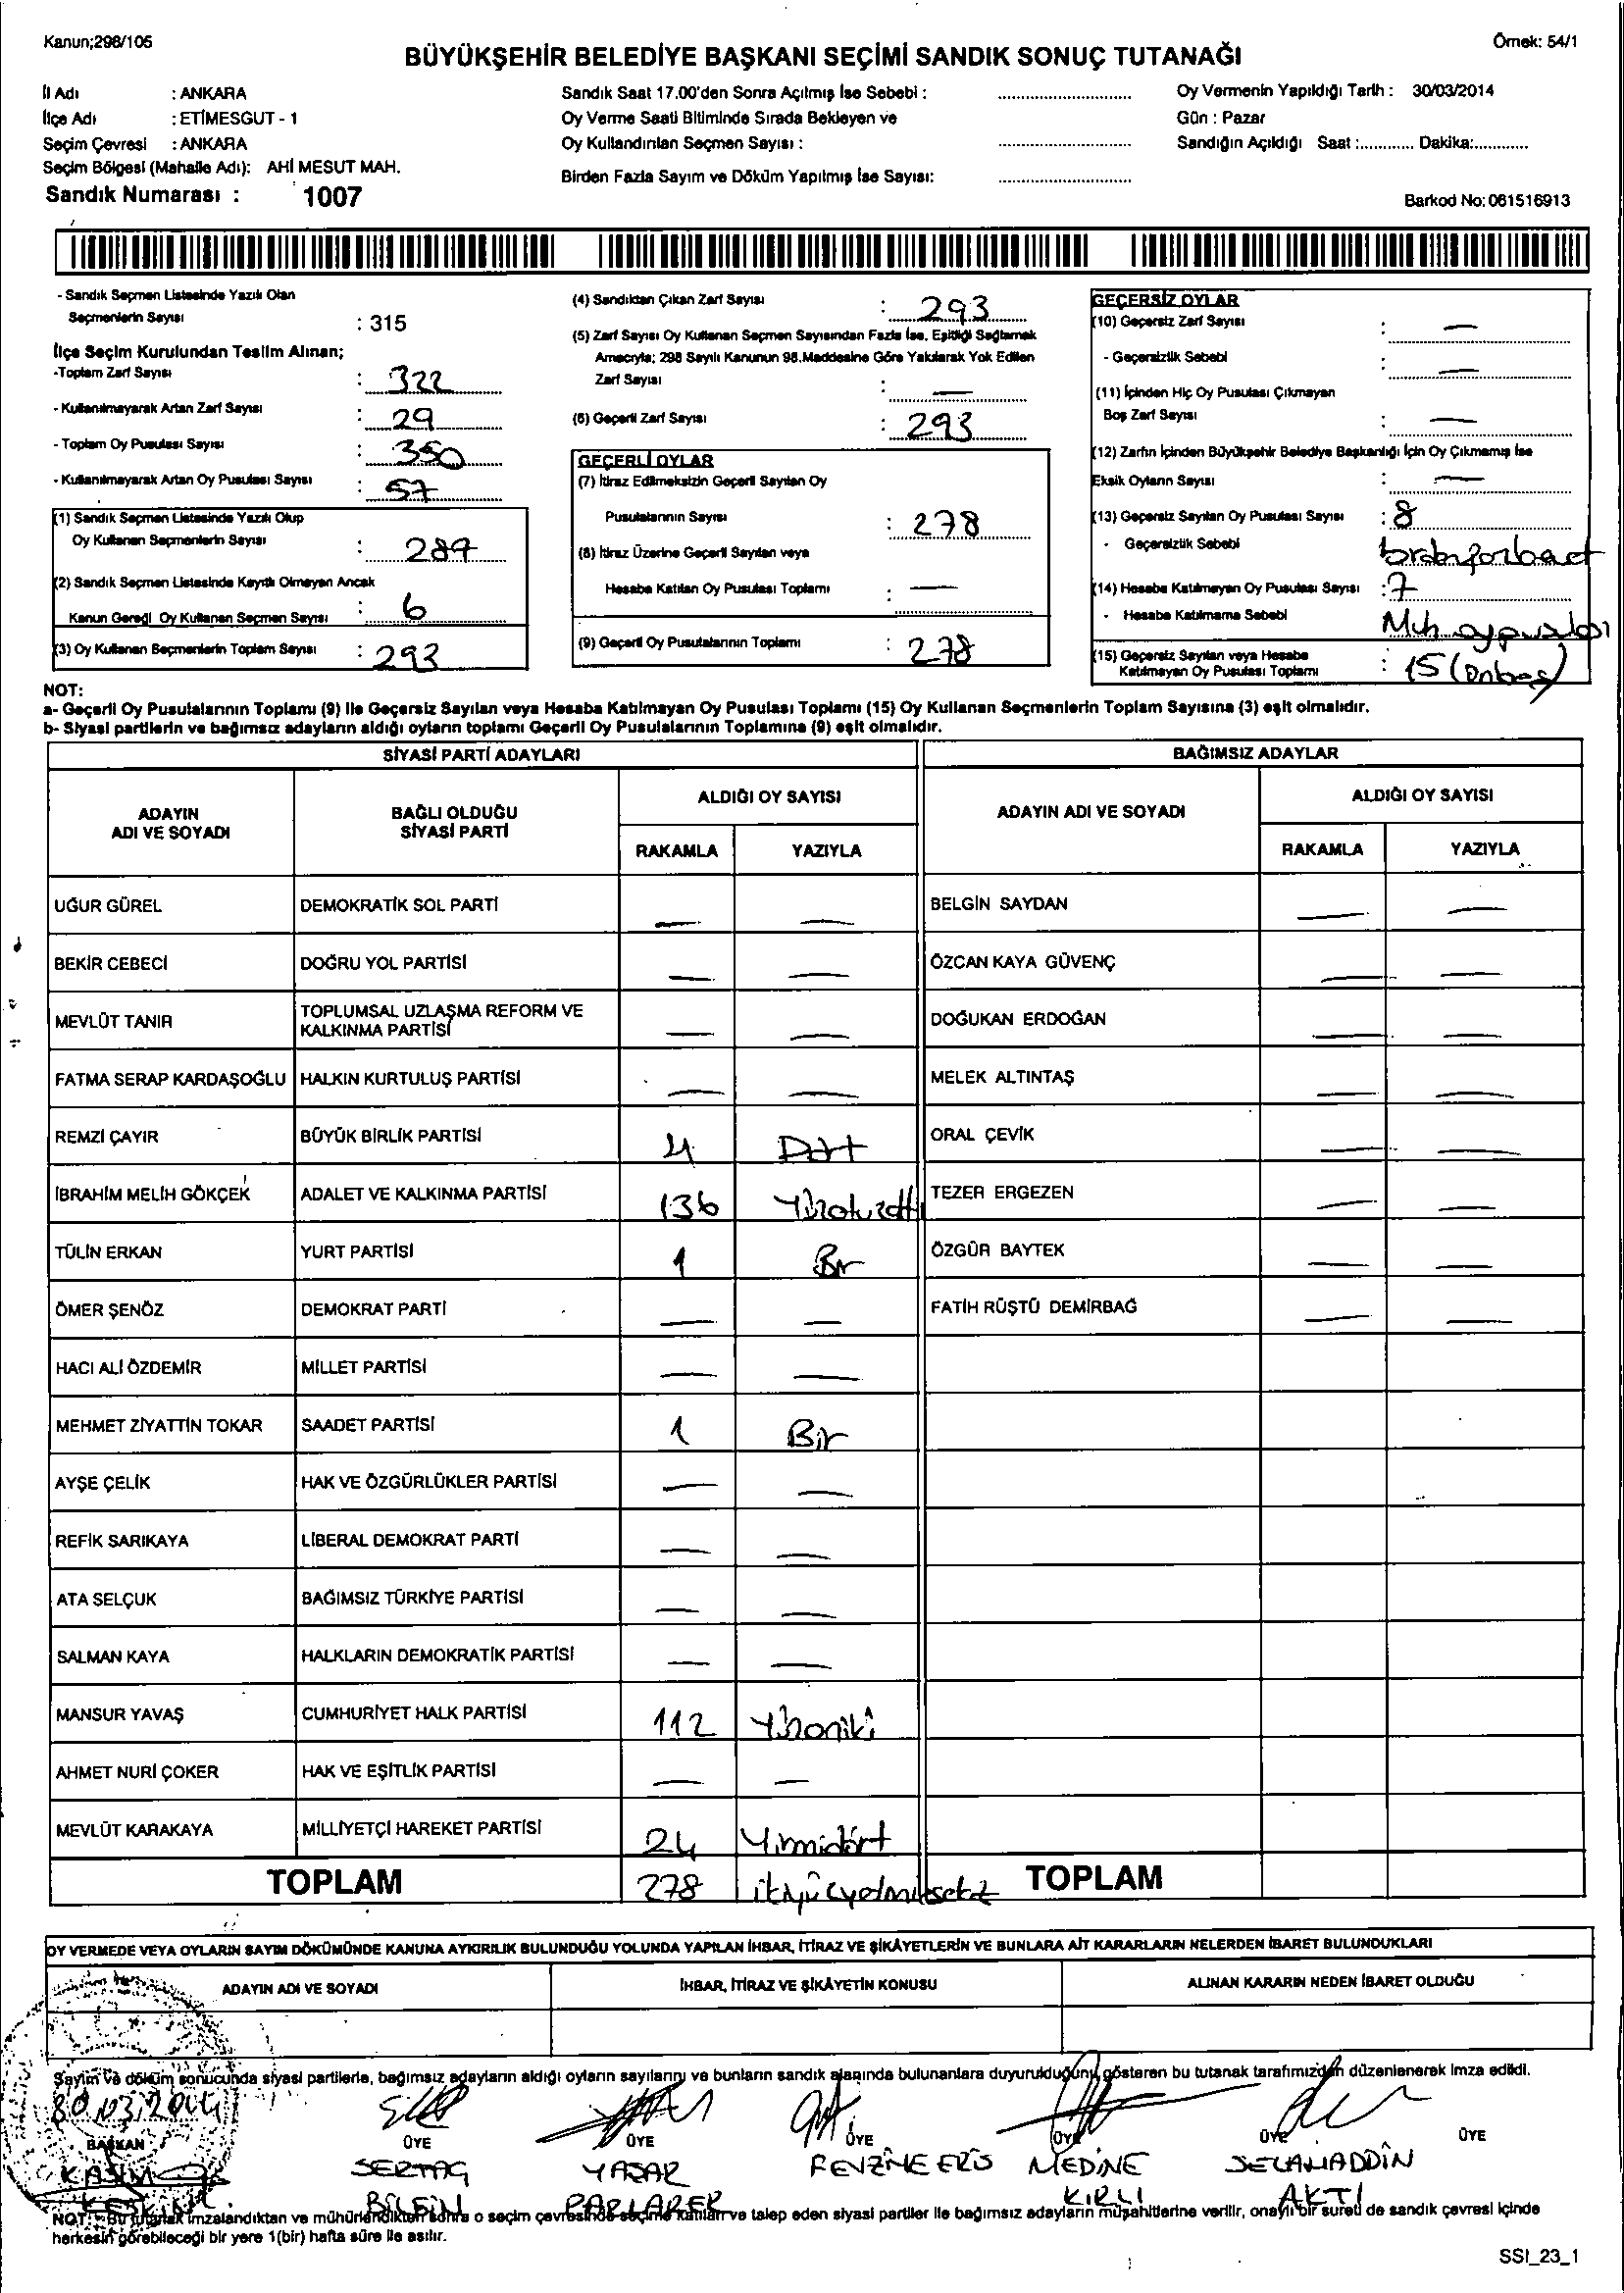 Kanun;298/105
Örnek: 54/1
BÜYÜKŞEHİR BELEDİYE BAŞKANI SEÇİMİ SANDIK SONUÇ TUTANAĞI
İl Adı : ANKARA
İlçe Adı : ETİMESGUT - 1
Seçim Çevresi : ANKARA
Seçim Bölgesi (Mahalle Adı): AHİ MESUT MAH.
Sandık Numarası : 1007
Sandık Saat 17.00'den Sonra Açılmış İse Sebebi :
Oy Verme Saati Bitiminde Sırada Bekleyen ve
Oy Kullandırılan Seçmen Sayısı :
Birden Fazla Sayım ve Döküm Yapılmış İse Sayısı:
Oy Vermenin Yapıldığı Tarih : 30/03/2014
Gün : Pazar
Sandığın Açıldığı Saat :............ Dakika:............
Barkod No: 061516913
- Sandık Seçmen Listesinde Yazılı Olan
Seçmenlerin Sayısı : 315
İlçe Seçim Kurulundan Teslim Alınan;
-Toplam Zarf Sayısı : 322
- Kullanılmayarak Artan Zarf Sayısı : 29
- Toplam Oy Pusulası Sayısı : 350
- Kullanılmayarak Artan Oy Pusulası Sayısı : 57
(1) Sandık Seçmen Listesinde Yazılı Olup
Oy Kullanan Seçmenlerin Sayısı : 287
(2) Sandık Seçmen Listesinde Kayıtlı Olmayan Ancak
Kanun Gereği Oy Kullanan Seçmen Sayısı : 6
(3) Oy Kullanan Seçmenlerin Toplam Sayısı : 293
(4) Sandıktan Çıkan Zarf Sayısı : 293
(5) Zarf Sayısı Oy Kullanan Seçmen Sayısından Fazla İse, Eşitliği Sağlamak
Amacıyla; 298 Sayılı Kanunun 98.Maddesine Göre Yakılarak Yok Edilen
Zarf Sayısı : —
(6) Geçerli Zarf Sayısı : 293
GEÇERLİ OYLAR
(7) İtiraz Edilmeksizin Geçerli Sayılan Oy
Pusulalarının Sayısı : 278
(8) İtiraz Üzerine Geçerli Sayılan veya
Hesaba Katılan Oy Pusulası Toplamı : —
(9) Geçerli Oy Pusulalarının Toplamı : 278
GEÇERSİZ OYLAR
(10) Geçersiz Zarf Sayısı : —
- Geçersizlik Sebebi : —
(11) İçinden Hiç Oy Pusulası Çıkmayan
Boş Zarf Sayısı : —
(12) Zarfın İçinden Büyükşehir Belediye Başkanlığı İçin Oy Çıkmamış İse
Eksik Oyların Sayısı : —
(13) Geçersiz Sayılan Oy Pusulası Sayısı : 8
- Geçersizlik Sebebi
(14) Hesaba Katılmayan Oy Pusulası Sayısı : 7
- Hesaba Katılmama Sebebi Muh oypuslası
(15) Geçersiz Sayılan veya Hesaba
Katılmayan Oy Pusulası Toplamı : 15 (onbeş)
NOT:
a- Geçerli Oy Pusulalarının Toplamı (9) ile Geçersiz Sayılan veya Hesaba Katılmayan Oy Pusulası Toplamı (15) Oy Kullanan Seçmenlerin Toplam Sayısına (3) eşit olmalıdır.
b- Siyasi partilerin ve bağımsız adayların aldığı oyların toplamı Geçerli Oy Pusulalarının Toplamına (9) eşit olmalıdır.
SİYASİ PARTİ ADAYLARI BAĞIMSIZ ADAYLAR
ADAYIN ADI VE SOYADI BAĞLI OLDUĞU SİYASİ PARTİ ALDIĞI OY SAYISI ADAYIN ADI VE SOYADI ALDIĞI OY SAYISI
RAKAMLA YAZIYLA RAKAMLA YAZIYLA
UĞUR GÜREL DEMOKRATİK SOL PARTİ — — BELGİN SAYDAN — —
BEKİR CEBECİ DOĞRU YOL PARTİSİ — — ÖZCAN KAYA GÜVENÇ — —
MEVLÜT TANIR TOPLUMSAL UZLAŞMA REFORM VE KALKINMA PARTİSİ — — DOĞUKAN ERDOĞAN — —
FATMA SERAP KARDAŞOĞLU HALKIN KURTULUŞ PARTİSİ — — MELEK ALTINTAŞ — —
REMZİ ÇAYIR BÜYÜK BİRLİK PARTİSİ 4 Dört ORAL ÇEVİK — —
İBRAHİM MELİH GÖKÇEK ADALET VE KALKINMA PARTİSİ 136 Yüzotuzaltı TEZER ERGEZEN — —
TÜLİN ERKAN YURT PARTİSİ 1 Bir ÖZGÜR BAYTEK — —
ÖMER ŞENÖZ DEMOKRAT PARTİ — — FATİH RÜŞTÜ DEMİRBAĞ — —
HACI ALİ ÖZDEMİR MİLLET PARTİSİ — —
MEHMET ZİYATTİN TOKAR SAADET PARTİSİ 1 Bir
AYŞE ÇELİK HAK VE ÖZGÜRLÜKLER PARTİSİ — —
REFİK SARIKAYA LİBERAL DEMOKRAT PARTİ — —
ATA SELÇUK BAĞIMSIZ TÜRKİYE PARTİSİ — —
SALMAN KAYA HALKLARIN DEMOKRATİK PARTİSİ — —
MANSUR YAVAŞ CUMHURİYET HALK PARTİSİ 112 Yüzoniki
AHMET NURİ ÇOKER HAK VE EŞİTLİK PARTİSİ — —
MEVLÜT KARAKAYA MİLLİYETÇİ HAREKET PARTİSİ 24 Yirmidört
TOPLAM 278 ikiyüzyetmişsekiz TOPLAM
OY VERMEDE VEYA OYLARIN SAYIM DÖKÜMÜNDE KANUNA AYKIRILIK BULUNDUĞU YOLUNDA YAPILAN İHBAR, İTİRAZ VE ŞİKÂYETLERİN VE BUNLARA AİT KARARLARIN NELERDEN İBARET BULUNDUKLARI
ADAYIN ADI VE SOYADI İHBAR, İTİRAZ VE ŞİKÂYETİN KONUSU ALINAN KARARIN NEDEN İBARET OLDUĞU
Sayım ve döküm sonucunda siyasi partilerle, bağımsız adayların aldığı oyların sayılarını ve bunların sandık alanında bulunanlara duyurulduğunu gösteren bu tutanak tarafımızdan düzenlenerek imza edildi.
30.03.2014
BAŞKAN ÜYE ÜYE ÜYE ÜYE ÜYE ÜYE
KASIM SERTAÇ YAŞAR FEVZİYE ERİŞ MEDİNE SELAHADDİN
KESKİN BİLGİN PARLAREK KIRLI AKTI
NOT : Bu tutanak imzalandıktan ve mühürlendikten sonra o seçim çevresinde seçime katılan ve talep eden siyasi partiler ile bağımsız adayların müşahitlerine verilir, onaylı bir sureti de sandık çevresi içinde
herkesin görebileceği bir yere 1(bir) hafta süre ile asılır.
SSI_23_1